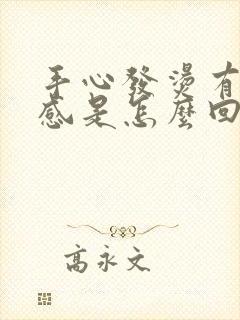 手心發燙有
感是怎麼回
高永文